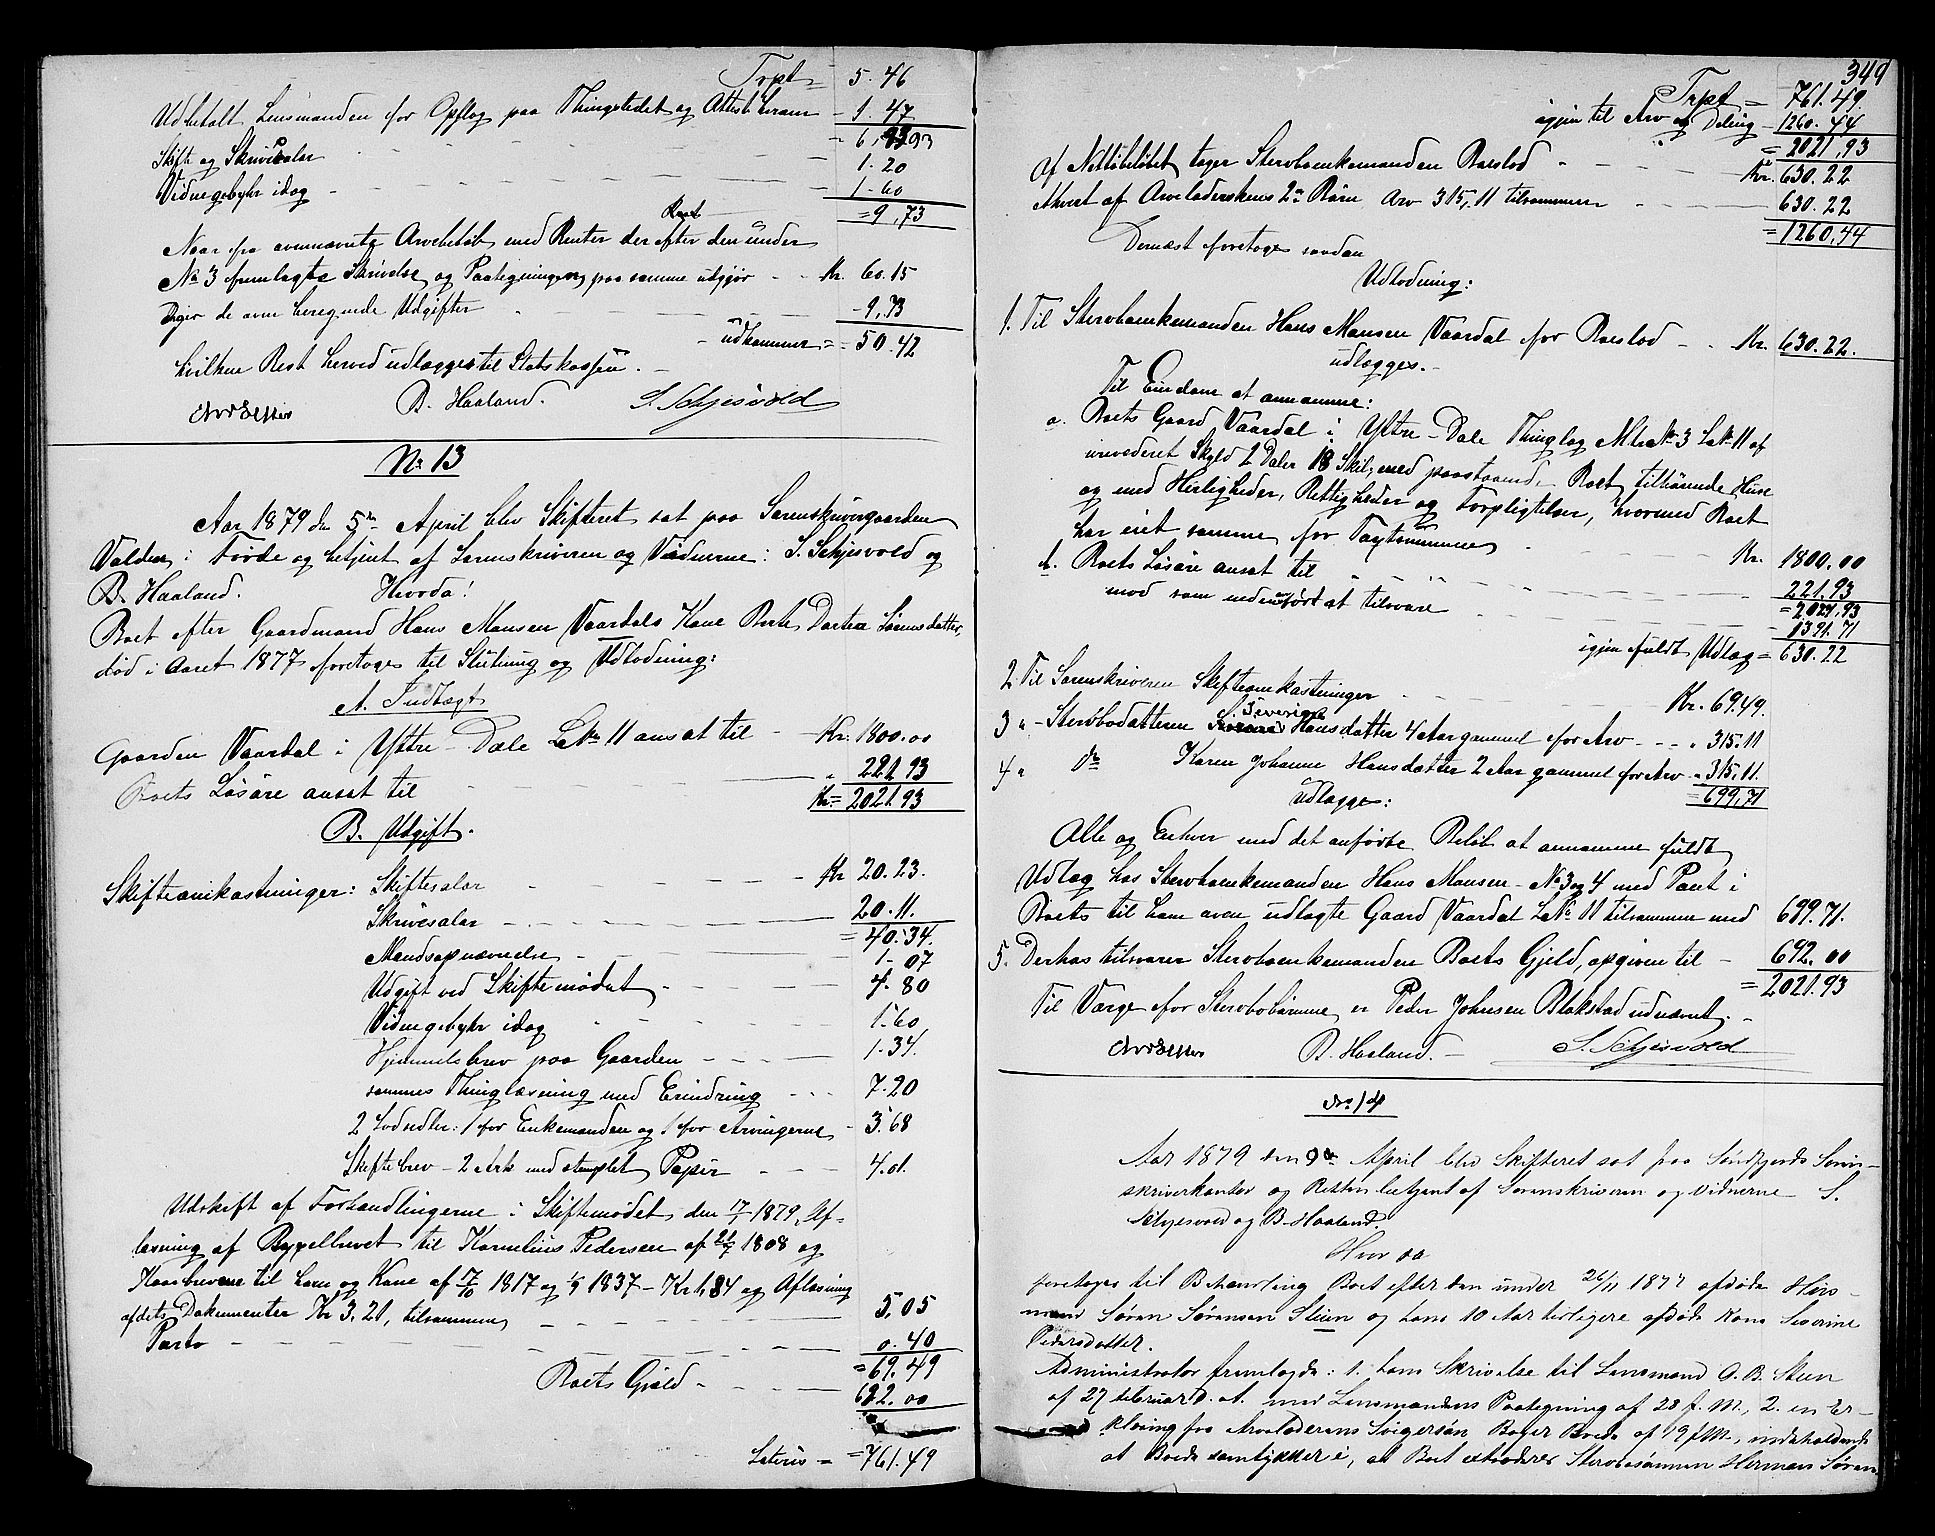 Trpt = 5.46
Udbetalt Lensmanden for Opslag paa Thingstedet og Attest herom - 1.47
- 6,93
Skifte og Skriversalær 1.20
Vidnegebyhr idag - 1.60
= 9,73
Naar fra ovennævnte Arvebeløb med Renter der efter den under
No 3 fremlagte Skrivelse og Paategningen paa samme udgjør - Kr. 60.15
drages de oven beregnede Udgifter - 9.73
udkommer = 50.42
hvilken Rest herved udlægges til Statskassen.
B. Haaland. S. Schjesvold
No 13
Aar 1879 den 5te April blev Skifteret sat paa Sorenskrivergaarden
Valden i Førde og betjent af Sorenskriveren og Vidnerne: S. Schjesvold og
B. Haaland. Hvorda!
Boet efter Gaardmand Hans Monsen Vaardals Kone Berte Dortea Sørensdatter,
død i Aaret 1877 foretoges til Slutning og Udlodning:
A. Indtægt
Gaarden Vaardal i Yttre-Dale LNo 11 ansat til - Kr. 1800.00
Boets Løsøre ansat til " 221.93
Kr = 2021.93
B. Udgift.
Skifteomkostninger: Skiftesalær - Kr 20.23.
Skriversalær - 20.11.
= 40.34.
Mandsopnævnelse - 1.07
Udgift ved Skiftemødet - 4.80
Vidnegebyhr idag 1.60
Hjemmelsbrev paa Gaarden - 1.34.
sammes Thinglæsning med Erindring - 7.20
2 Lodsedler: 1 for Enkemanden og 1 for Arvingerne - 3.68
Skiftebrev - 2 Ark med stemplet Papir - 4.01.
Udskrift af Forhandlingerne i Skiftemødet den 17/1 1879, Af-
løsning af Bygselbrevet til Kornelius Pedersen af 21/7 1808 og
Kaarbrevene til ham og Kone af 17/10 1817 og 1/9 1837 - Kr 1,84 og Afløsning
af dets Dokumenter Kr 3.21, tilsammen 5.05
Porto - 0.40
= 69.49
Boets Gjæld - 692.00
Lateris = = 761.49
349
Trpt = 761.49.
igjen til Arv og Deling - 1260.44
= 2021,93
Af Nettobeløbet tager Sterbboenkemanden Boeslod - Kr. 630.22
Ethvert af Arveladerskens 2de Børn Arv 315,11 tilsammen 630.22
= 1260,44
Dernæst foretoges saadan
Udlodning:
1. Til Sterbboenkemanden Hans Monsen Vaardal for Boeslod - Kr. 630.22.
udlægges.
Til Eiendom at annamme:
a. Boets Gaard Vaardal i Yttre-Dale Thinglag MtrNo 3 LNo 11 af
urevideret Skyld 2 Daler 18 Skil, med paastaaende, Boet tilhørende Huse
og med Herligheder, Rettigheder og Forpligtelser, hvormed Boet
har eiet samme for Taxtsummen Kr. 1800.00
b. Boets Løsøre ansat til 221.93
= 2021,93
mod som nedenført at tilsvare - 1391.71
igjen fuldt Udlæg = 630.22
2. Til Sorenskriveren Skifteomkostninger - Kr. 69.49.
3 " - Sterbbodatteren Hansdatter 4 Aar gammel for Arv - " 315.11
4 " Do Karen Johanne Hansdatter 2 Aar gammel for Arv " 315,11.
= 699,71
Udlægges:
Alle og Enhver med det anførte Beløb at annamme fuldt
Udlæg hos Sterbboenkemanden Hans Monsen - No 3 og 4 med Pant i
Boets til ham oven udlagte Gaard Vaardal LNo 11 tilsammen med 699.71.
5. Derhos tilsvarer Sterbboenkemanden Boets Gjeld, opgiven til - 692.00
= 2021.93
Til Værge for Sterbbobørnene er Peder Johnsen Blakstad udnævnt. -
B. Haaland. - S. Schjesvold
No 14
Aar 1879 den 9de April blev Skifteret sat paa Søndfjords Soren-
skriverkontor og Retten betjent af Sorenskriveren og Vidnerne S.
Schjesvold og B. Haaland.
Hvor da
foretoges til Behandling Boet efter den under 26/11 1877 afdøde Huus-
mand Søren Sørensen Steien og hans 10 Aar tidligere afdøde Kone Severine
Pedersdatter.
Administrator fremlagde: 1. hans Skrivelse til Lensmand O. B. Steen
af 27 Februar d. A. med Lensmandens Paategning af 28 f. M., 2. en Er-
klæring fra Arveladerens Svigersøn af 19 f. M., indeholdende
at samtykker i, at Boet extraderes Sterbbosønnen Herman Søren